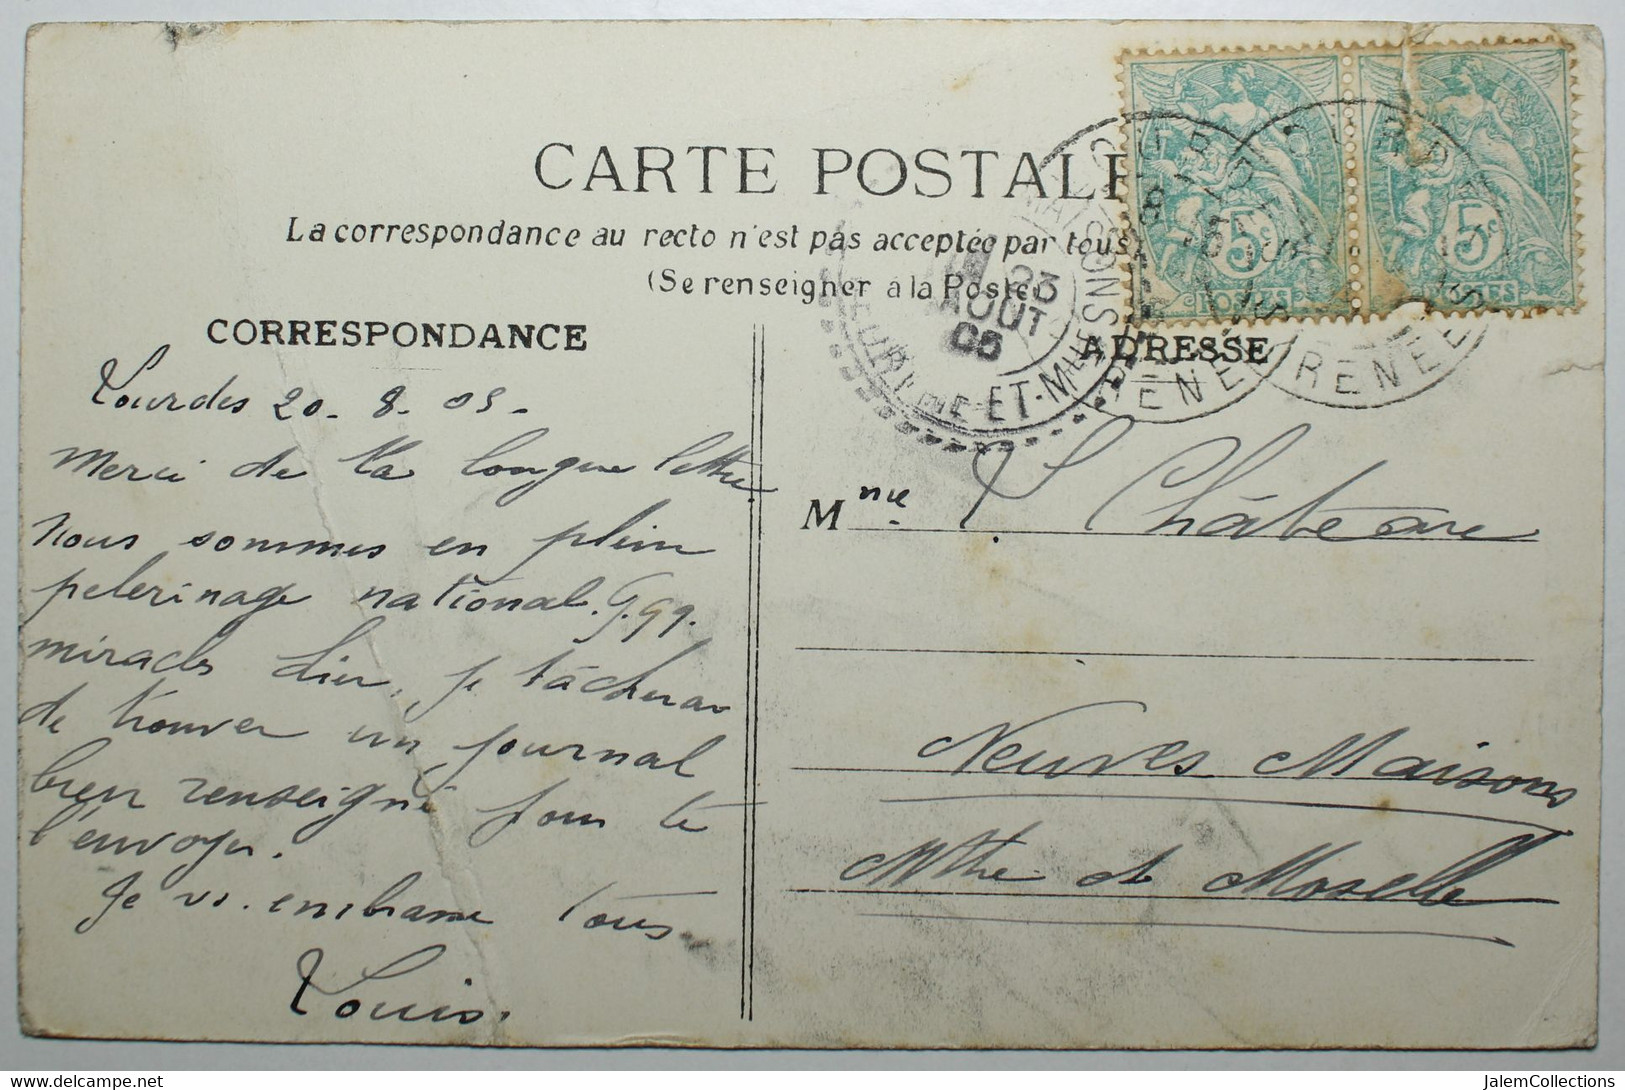 CARTE POSTALE
La correspondance au recto n'est pas acceptée par tous
(Se renseigner à la Poste
CORRESPONDANCE
Lourdes 20-8-05-
Merci de ta longue lettre
nous sommes en plein
pelerinage national.
miracles hier, je tâcherai
de trouver un journal
bien renseigné pour te
l'envoyer.
Je vs. embrasse tous
Louis.
ADRESSE
Mme. L. Château
Neuves Maisons
Mthe de Moselle
5c
POSTES
5c
POSTES
LOURDES
PYRENEES
LOURDES
PYRENEES
NEUVES-MAISONS
23
AOUT
05
MEURTHE-ET-MLLE
JalemCollections